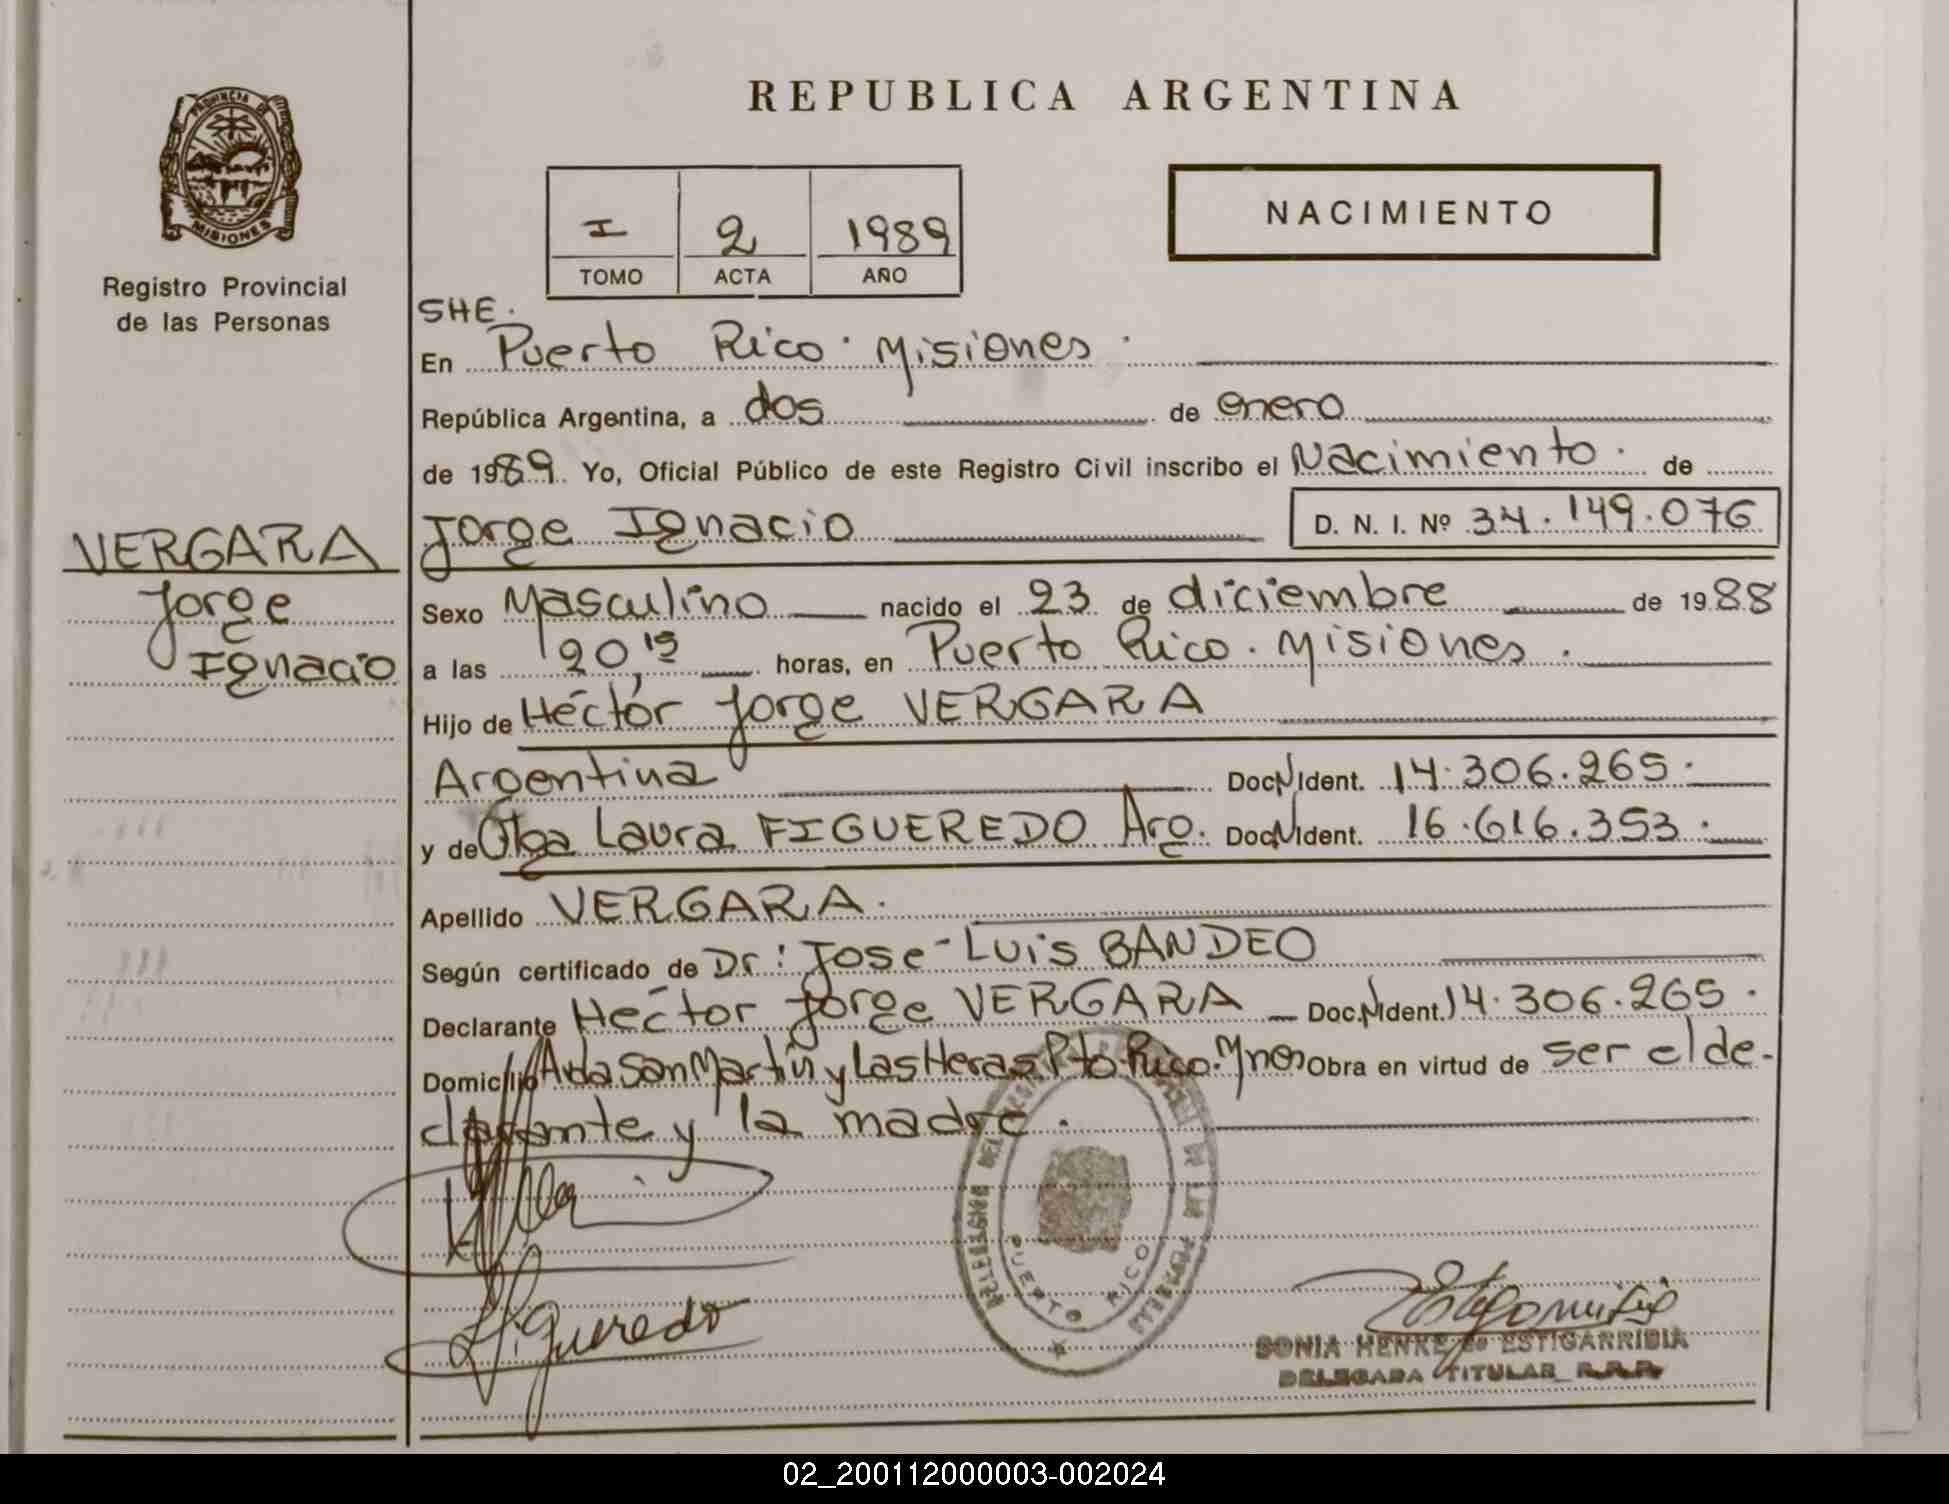 PROVINCIA DE
MISIONES
Registro Provincial
de las Personas
VERGARA
Jorge
Ignacio
REPUBLICA ARGENTINA
I 2 1989
TOMO ACTA AÑO
NACIMIENTO
SHE.
En Puerto Rico. Misiones.
República Argentina, a dos de enero
de 1989. Yo, Oficial Público de este Registro Civil inscribo el Nacimiento. de
Jorge Ignacio D. N. I. Nº 34.149.076
Sexo Masculino nacido el 23 de diciembre de 1988
a las 20,15 horas, en Puerto Rico. Misiones.
Hijo de Héctor Jorge VERGARA
Argentina Doc.N.Ident. 14.306.265.
y de Olga Laura FIGUEREDO Arg. Doc.N.Ident. 16.616.353.
Apellido VERGARA.
Según certificado de Dr: Jose Luis BANDEO
Declarante Héctor Jorge VERGARA Doc.N.Ident. 14.306.265.
Domicilio Avda San Martín y Las Heras. Pto. Rico. Mnes Obra en virtud de ser el de-
clarante y la madre.
PUERTO RICO
Figueredo
SONIA HENKE de ESTIGARRIBIA
DELEGADA TITULAR R.P.P.
02_200112000003-002024